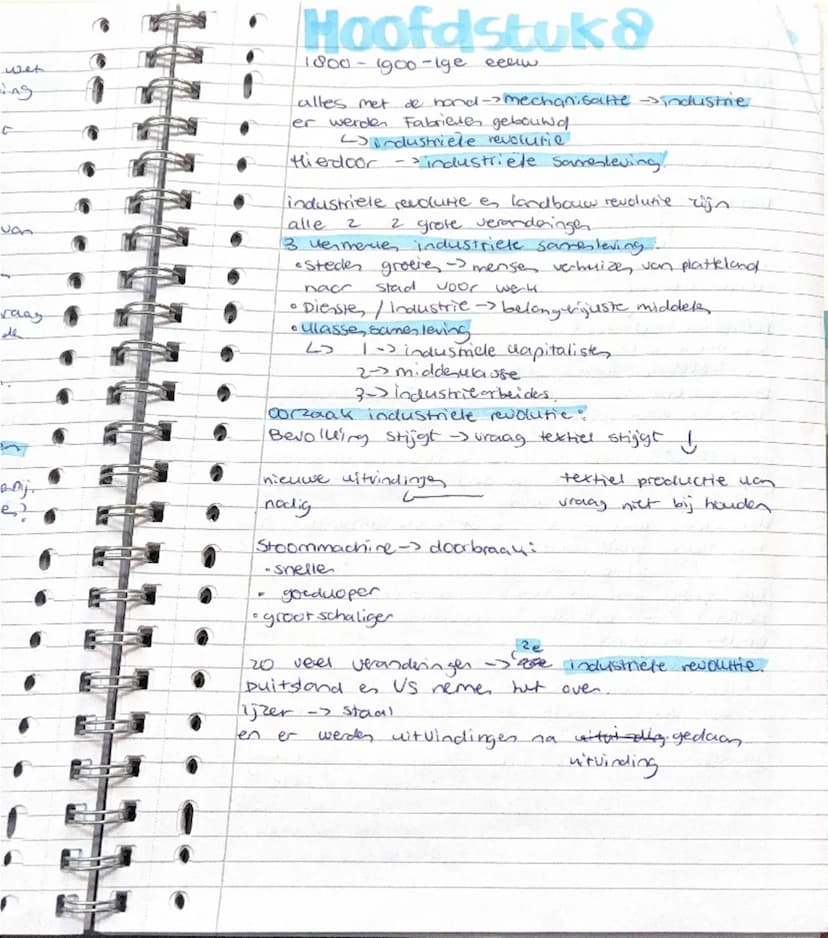 wet
ing
t
van
vraag
de
en
enij.
e?
Hoofdstuk 8
1800-1900-19e eeuw
alles met de hand -> mechanisatie -> industrie
er werden fabrieken gebouwd
↳ industriële revolutie
Hierdoor -> industriële samenleving.
industriele revolutie en landbouw revolutie zijn
alle 2 2 grote veranderingen
3 kenmerken industriele samenleving.
• Steden groeien -> mensen verhuizen van platteland
naar stad voor werk
• Diensten / industrie -> belangrijkste middelen
• klassensamenleving
↳ 1 -> industriele kapitalisten
2 -> middenklasse
3 -> industriearbeiders.
oorzaak industriele revolutie:
Bevolking stijgt -> vraag textiel stijgt ↓
nieuwe uitvindingen textiel productie kan
nodig vraag niet bij houden
Stoommachine -> doorbraak:
• sneller
• goedkoper
• grootschaliger
2e
zo veel veranderingen -> industriële revolutie.
Duitsland en VS nemen het over.
ijzer -> staal
en er werden uitvindingen na gedaan
uitvinding